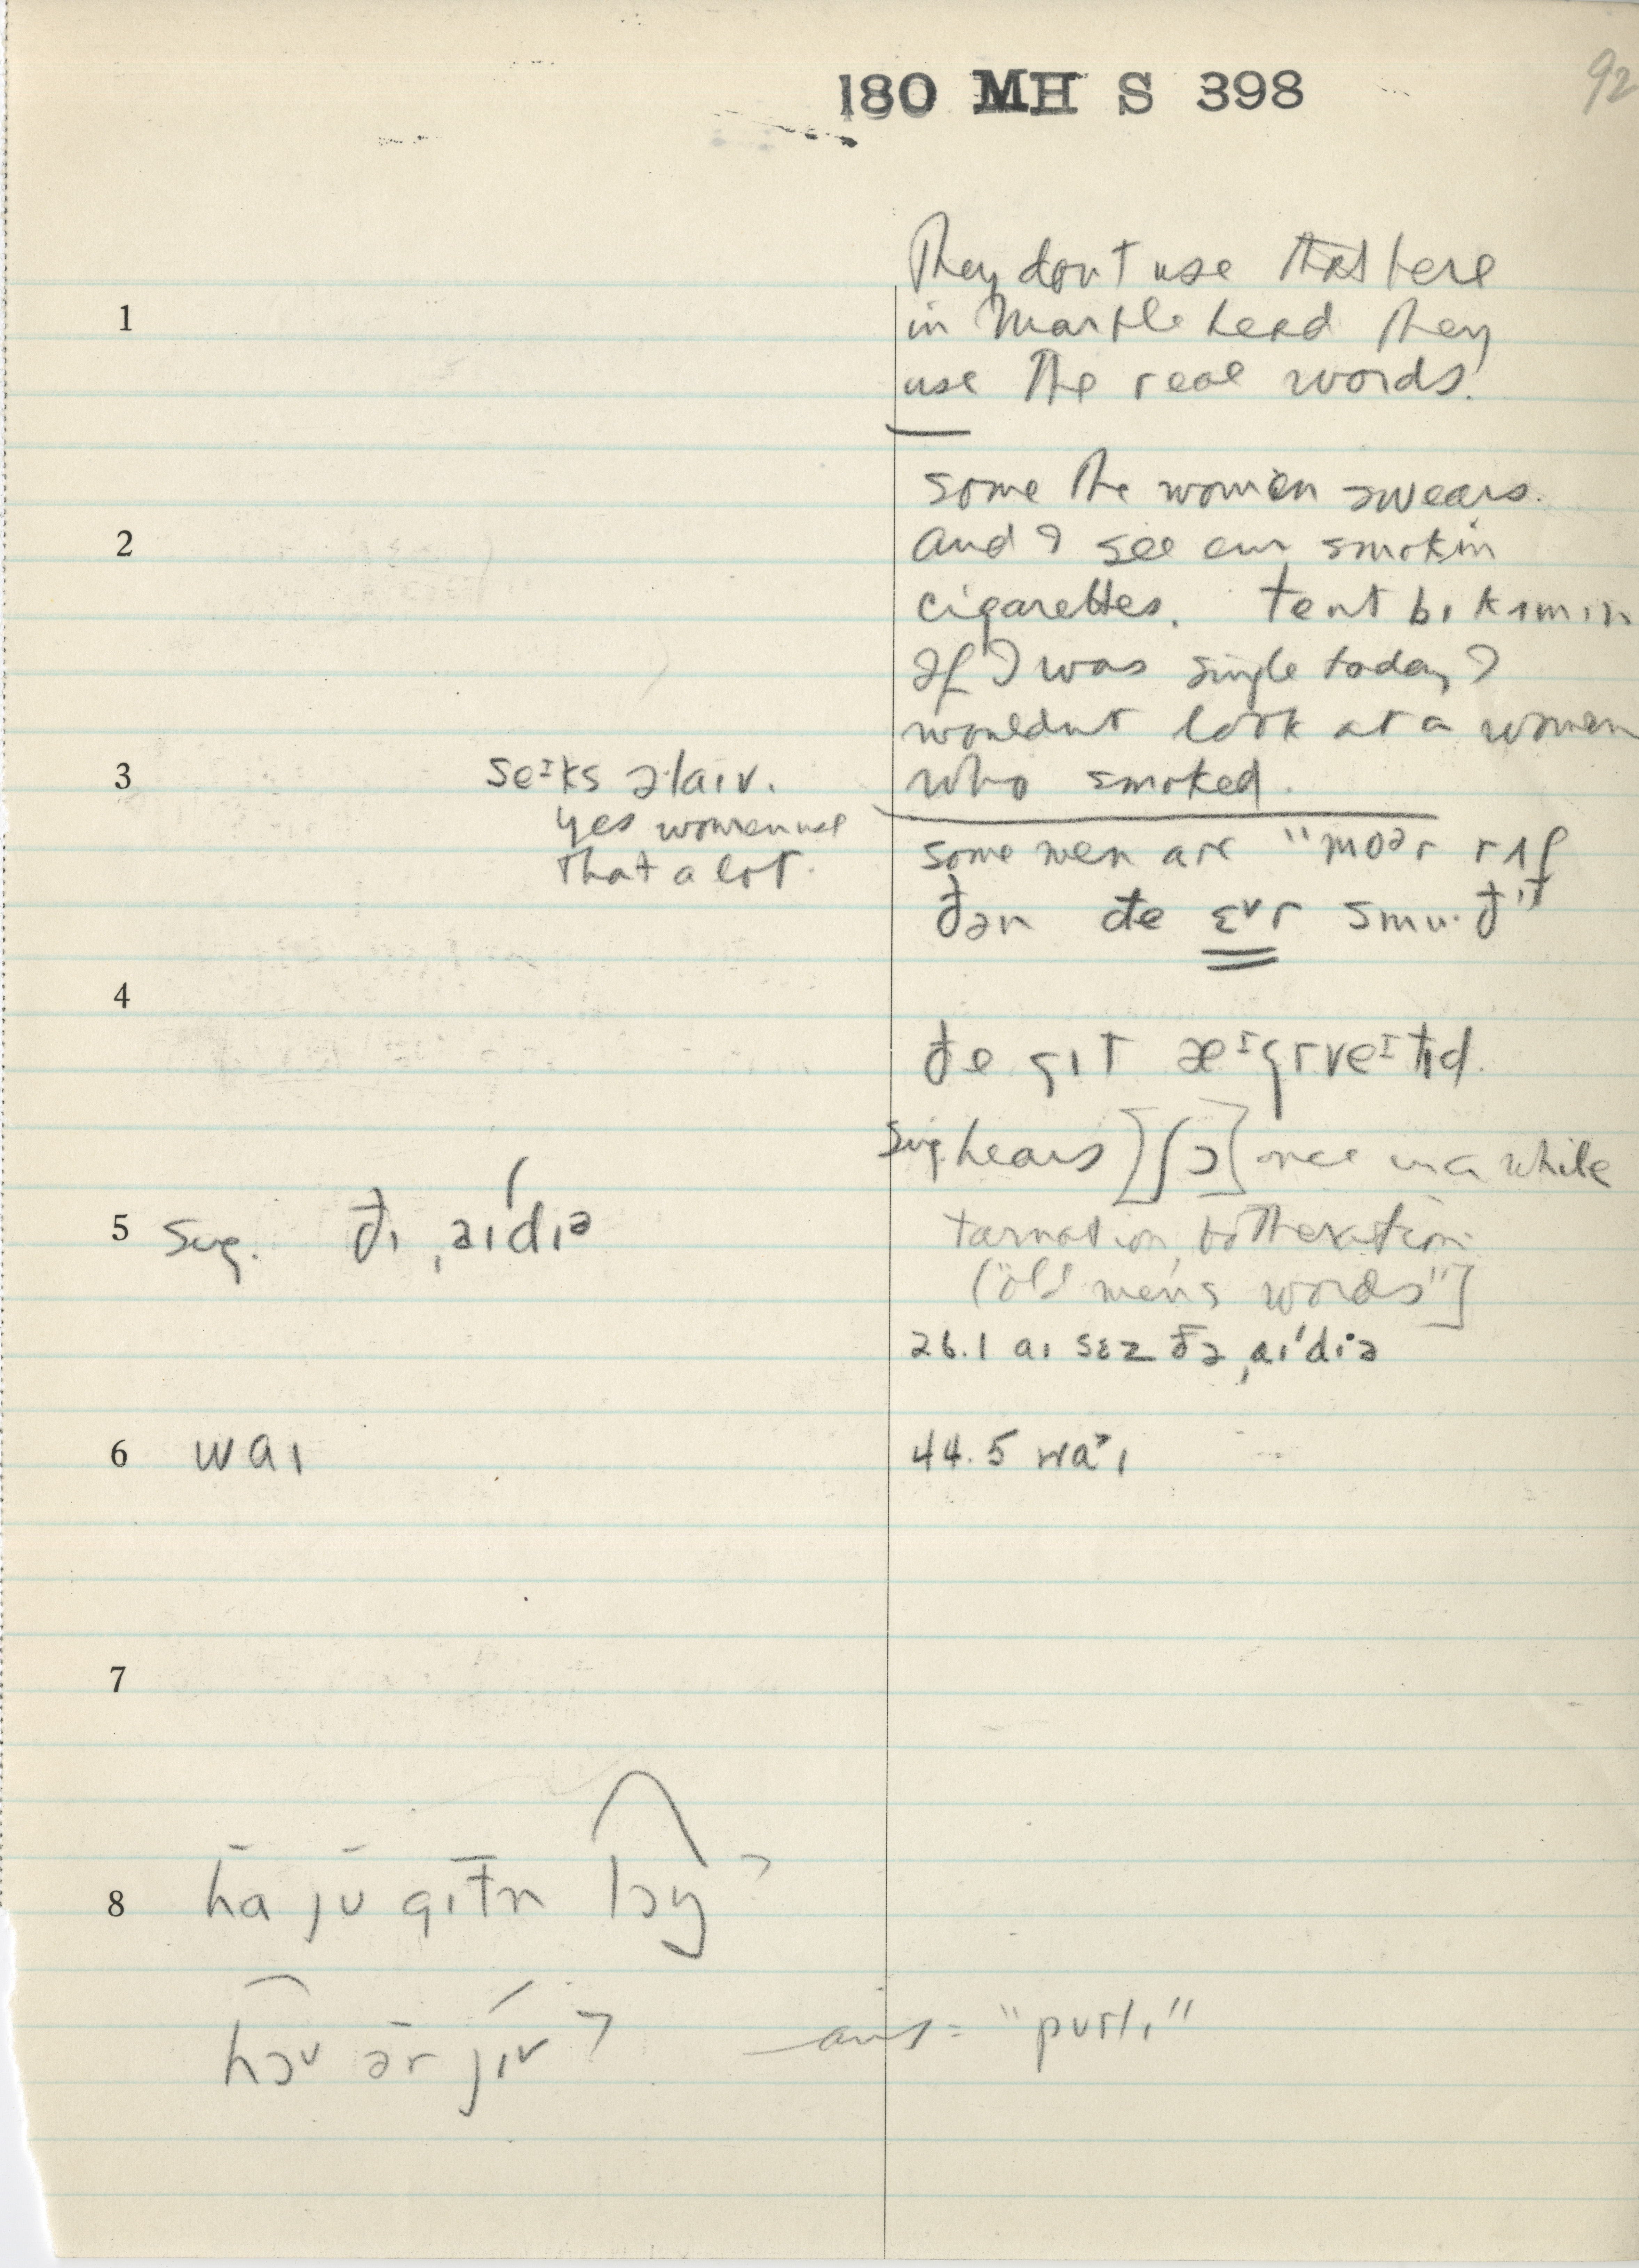 180 MH S 398
92
They don't use that here
1
in Marblehead they
use the real words.
some the women swears.
2
and I see em smokin
cigarettes. teɪnt bɪkʌmɪn
If I was single today I
wouldnt look at a women
3
seᶦks əlaɪv.
who smoked.
yes women use
that a lot.
some men are "moᵊr rʌf
ðən ðe ɛvr smu·ð"
4
ðe gɪt æᶦgrveᶦt̬ɪd.
Sug. hears [ʃɔ] once in a while
5
Sug. ðɪ ˌaɪdɪə
tarnation, botheration
("old men's words"]
26.1 aɪ sɛz ðə ˌaɪ'dɪə
6
waɪ
44.5 wa˃ɪ
7
8
ha ju gɪt̬n lɔŋ?
hɔʊ ər jɪʊ?
ans = "pʊrlɪ"